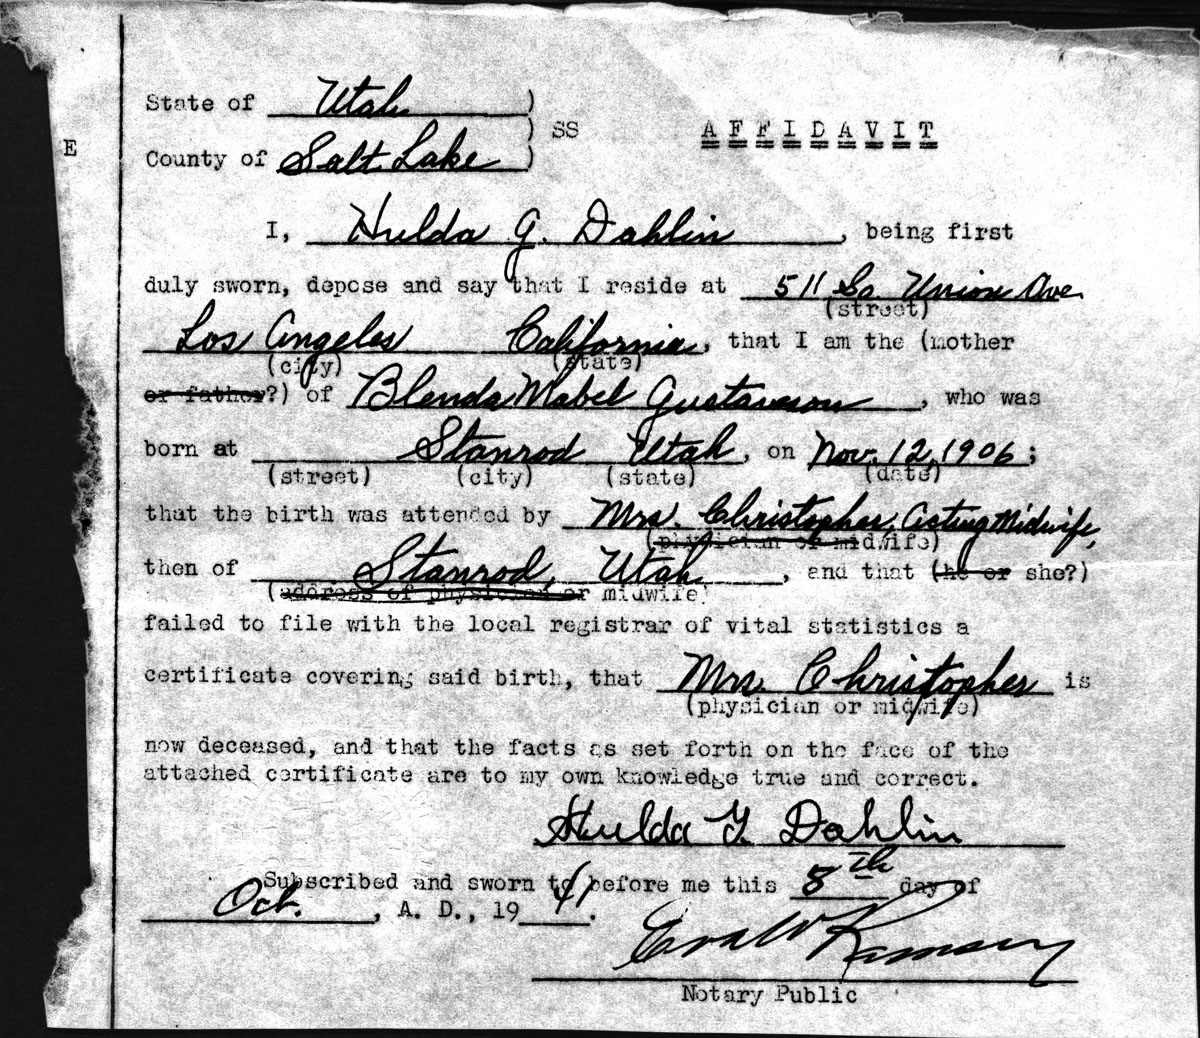 State of Utah )
) SS A F F I D A V I T
E
County of Salt Lake )
I, Hulda G. Dahlin, being first
duly sworn, depose and say that I reside at 511 So. Union Ave.
(street)
Los Angeles California, that I am the (mother
(city) (state)
or father?) of Blenda Mabel Gustaveson, who was
born at Stanrod Utah, on Nov. 12, 1906;
(street) (city) (state) (date)
that the birth was attended by Mrs. Christopher, Acting Midwife,
(physician or midwife)
then of Stanrod, Utah, and that (he or she?)
(address of physician or midwife)
failed to file with the local registrar of vital statistics a
certificate covering said birth, that Mrs. Christopher is
(physician or midwife)
now deceased, and that the facts as set forth on the face of the
attached certificate are to my own knowledge true and correct.
Hulda G. Dahlin
Subscribed and sworn to before me this 8th day of
Oct., A. D., 1941.
Ramsey
Notary Public